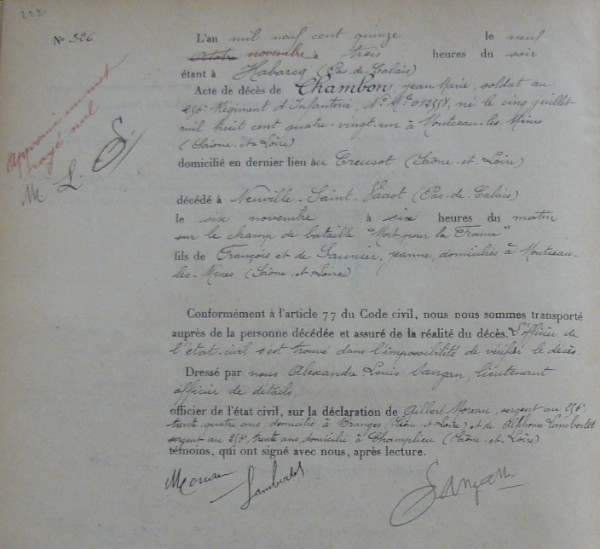 222
No 326
L'an mil neuf cent quinze le neuf
octobre novembre à trois heures du soir
étant à Habarcq (Pas-de-Calais)
Acte de décès de Chambon, Jean Marie, soldat au
256e Régiment d'Infanterie, No Mle 012558, né le cinq juillet
mil huit cent quatre-vingt-un à Montceau-les-Mines
(Saône-et-Loire)
Approuvé un mot
rayé nul
M L. S.
domicilié en dernier lieu au Creusot (Saône-et-Loire)
décédé à Neuville-Saint-Vaast (Pas-de-Calais)
le six novembre à six heures du matin
sur le champ de bataille "Mort pour la France"
fils de François et de Saunier, Jeanne, domiciliés à Montceau-
les-Mines (Saône-et-Loire)
Conformément à l'article 77 du Code civil, nous nous sommes transporté
auprès de la personne décédée et assuré de la réalité du décès. L'officier de
l'état-civil s'est trouvé dans l'impossibilité de vérifier le décès
Dressé par nous Alexandre Louis Sanzan, lieutenant
officier de détails,
officier de l'état civil, sur la déclaration de Gilbert Moreau, sergent au 256e
trente quatre ans, domicilié à (Saône-et-Loire) et de Alphonse Lambertet
sergent au 256e, trente ans, domicilié à Champlieu (Saône-et-Loire)
témoins, qui ont signé avec nous, après lecture.
Moreau
Lambertet
Sanzan